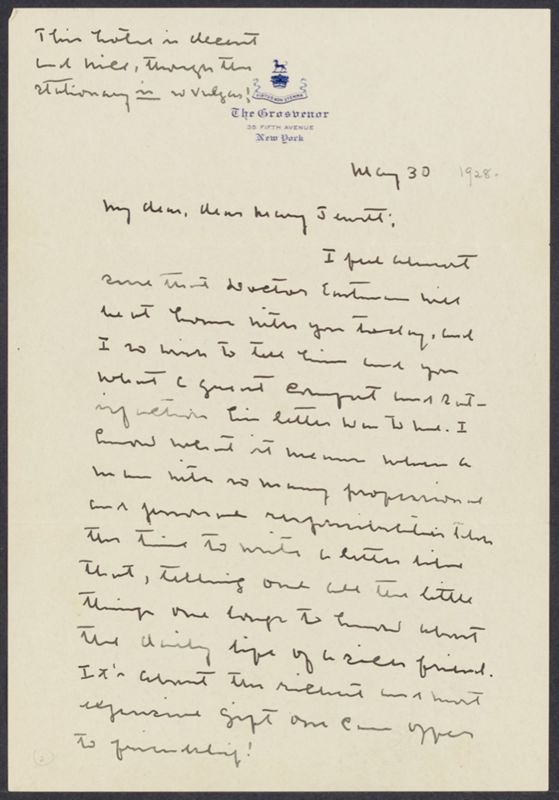 This hotel is decent
and nice, though the
stationary is so vulgar!
VIRTUS NON STEMMA
The Grosvenor
35 FIFTH AVENUE
New York
May 30 1928.
My dear, dear Mary Jewett;
I feel almost
sure that Doctor Eastman will
be at home with you today, and
I so wish to tell him and you
what a great comfort and sat-
isfaction his letter was to me. I
know what it means when a
man with so many professional
and personal responsibilities takes
the time to write a letter like
that, telling one all the little
things one longs to know about
the daily life of a sick friend.
It's about the richest and most
expensive gift one can offer
to friendship!